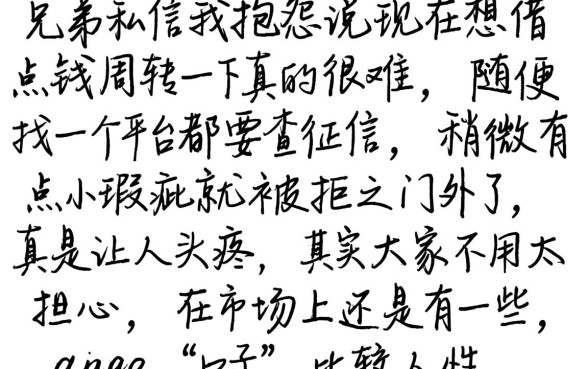 兄弟私信我抱怨说现在想借
点钱周转一下真的很难，随便
找一个平台都要查征信，稍微有
点小瑕疵就被拒之门外了，
真是让人头疼，其实大家不用太
担心，在市场上还是有一些，
“口子”比较人性